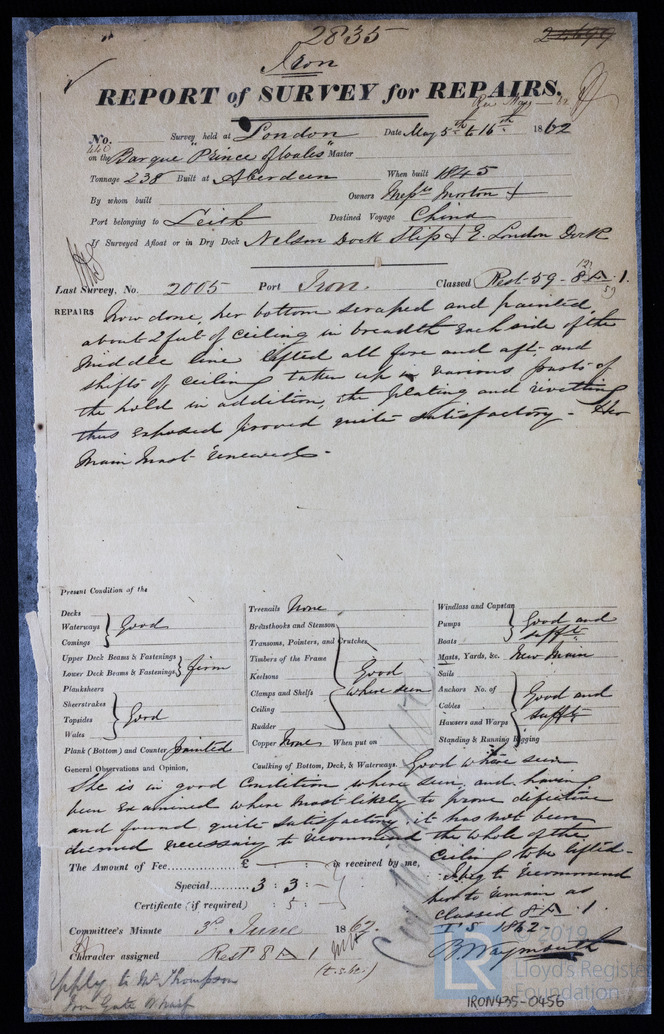 2835
Iron
REPORT of SURVEY for REPAIRS.
No. 440 Survey held at London Date May 5th to 16th 1862
on the Barque "Prince of Wales" Master
Tonnage 238 Built at Aberdeen When built 1845
By whom built Owners Messrs Morton &
Port belonging to Leith Destined Voyage China
If Surveyed Afloat or in Dry Dock Nelson Dock Slip & E. London Dock
Last Survey, No. 2005 Port Iron. Classed Rest. 59 - 8 A 1.
REPAIRS Now done, her bottom scraped and painted,
about 2 feet of ceiling in breadth each side of the
middle line lifted all fore and aft, and
shifts of ceiling taken up in various parts of
the hold in addition, the plating and rivetting
thus exposed proved quite satisfactory - Her
Main Mast renewed -
Present Condition of the
Decks
Waterways Good
Comings
Upper Deck Beams & Fastenings
Lower Deck Beams & Fastenings firm
Planksheers
Sheerstrakes
Topsides Good
Wales
Plank (Bottom) and Counter Painted
Treenails None
Breasthooks and Stemson
Transoms, Pointers, and Crutches
Timbers of the Frame
Keelsons Good
Clamps and Shelfs where seen
Ceiling
Rudder
Copper None When put on
Windlass and Capstan
Pumps Good and
Boats sufft
Masts, Yards, &c. New Main
Sails
Anchors No. of Good and
Cables
Hawsers and Warps sufft
Standing & Running Rigging
General Observations and Opinion, Caulking of Bottom, Deck, & Waterways. Good where seen
She is in good condition where seen, and having
been examined where most likely to prove defective
and found quite satisfactory, it has not been
deemed necessary to recommend the whole of the
ceiling to be lifted -
The Amount of Fee...... £ is received by me,
I beg to recommend
Special.......... 3 : 3 : -
her to remain as
Certificate (if required) : 5 : -
classed 8 A 1.
Committee's Minute 3rd June 1862
B Waymouth
Character assigned Rest 8 A 1
Apply to Mr Thompson
Iron Gate Wharf
2019
LR
Lloyd's Register
Foundation
IRON435-0456